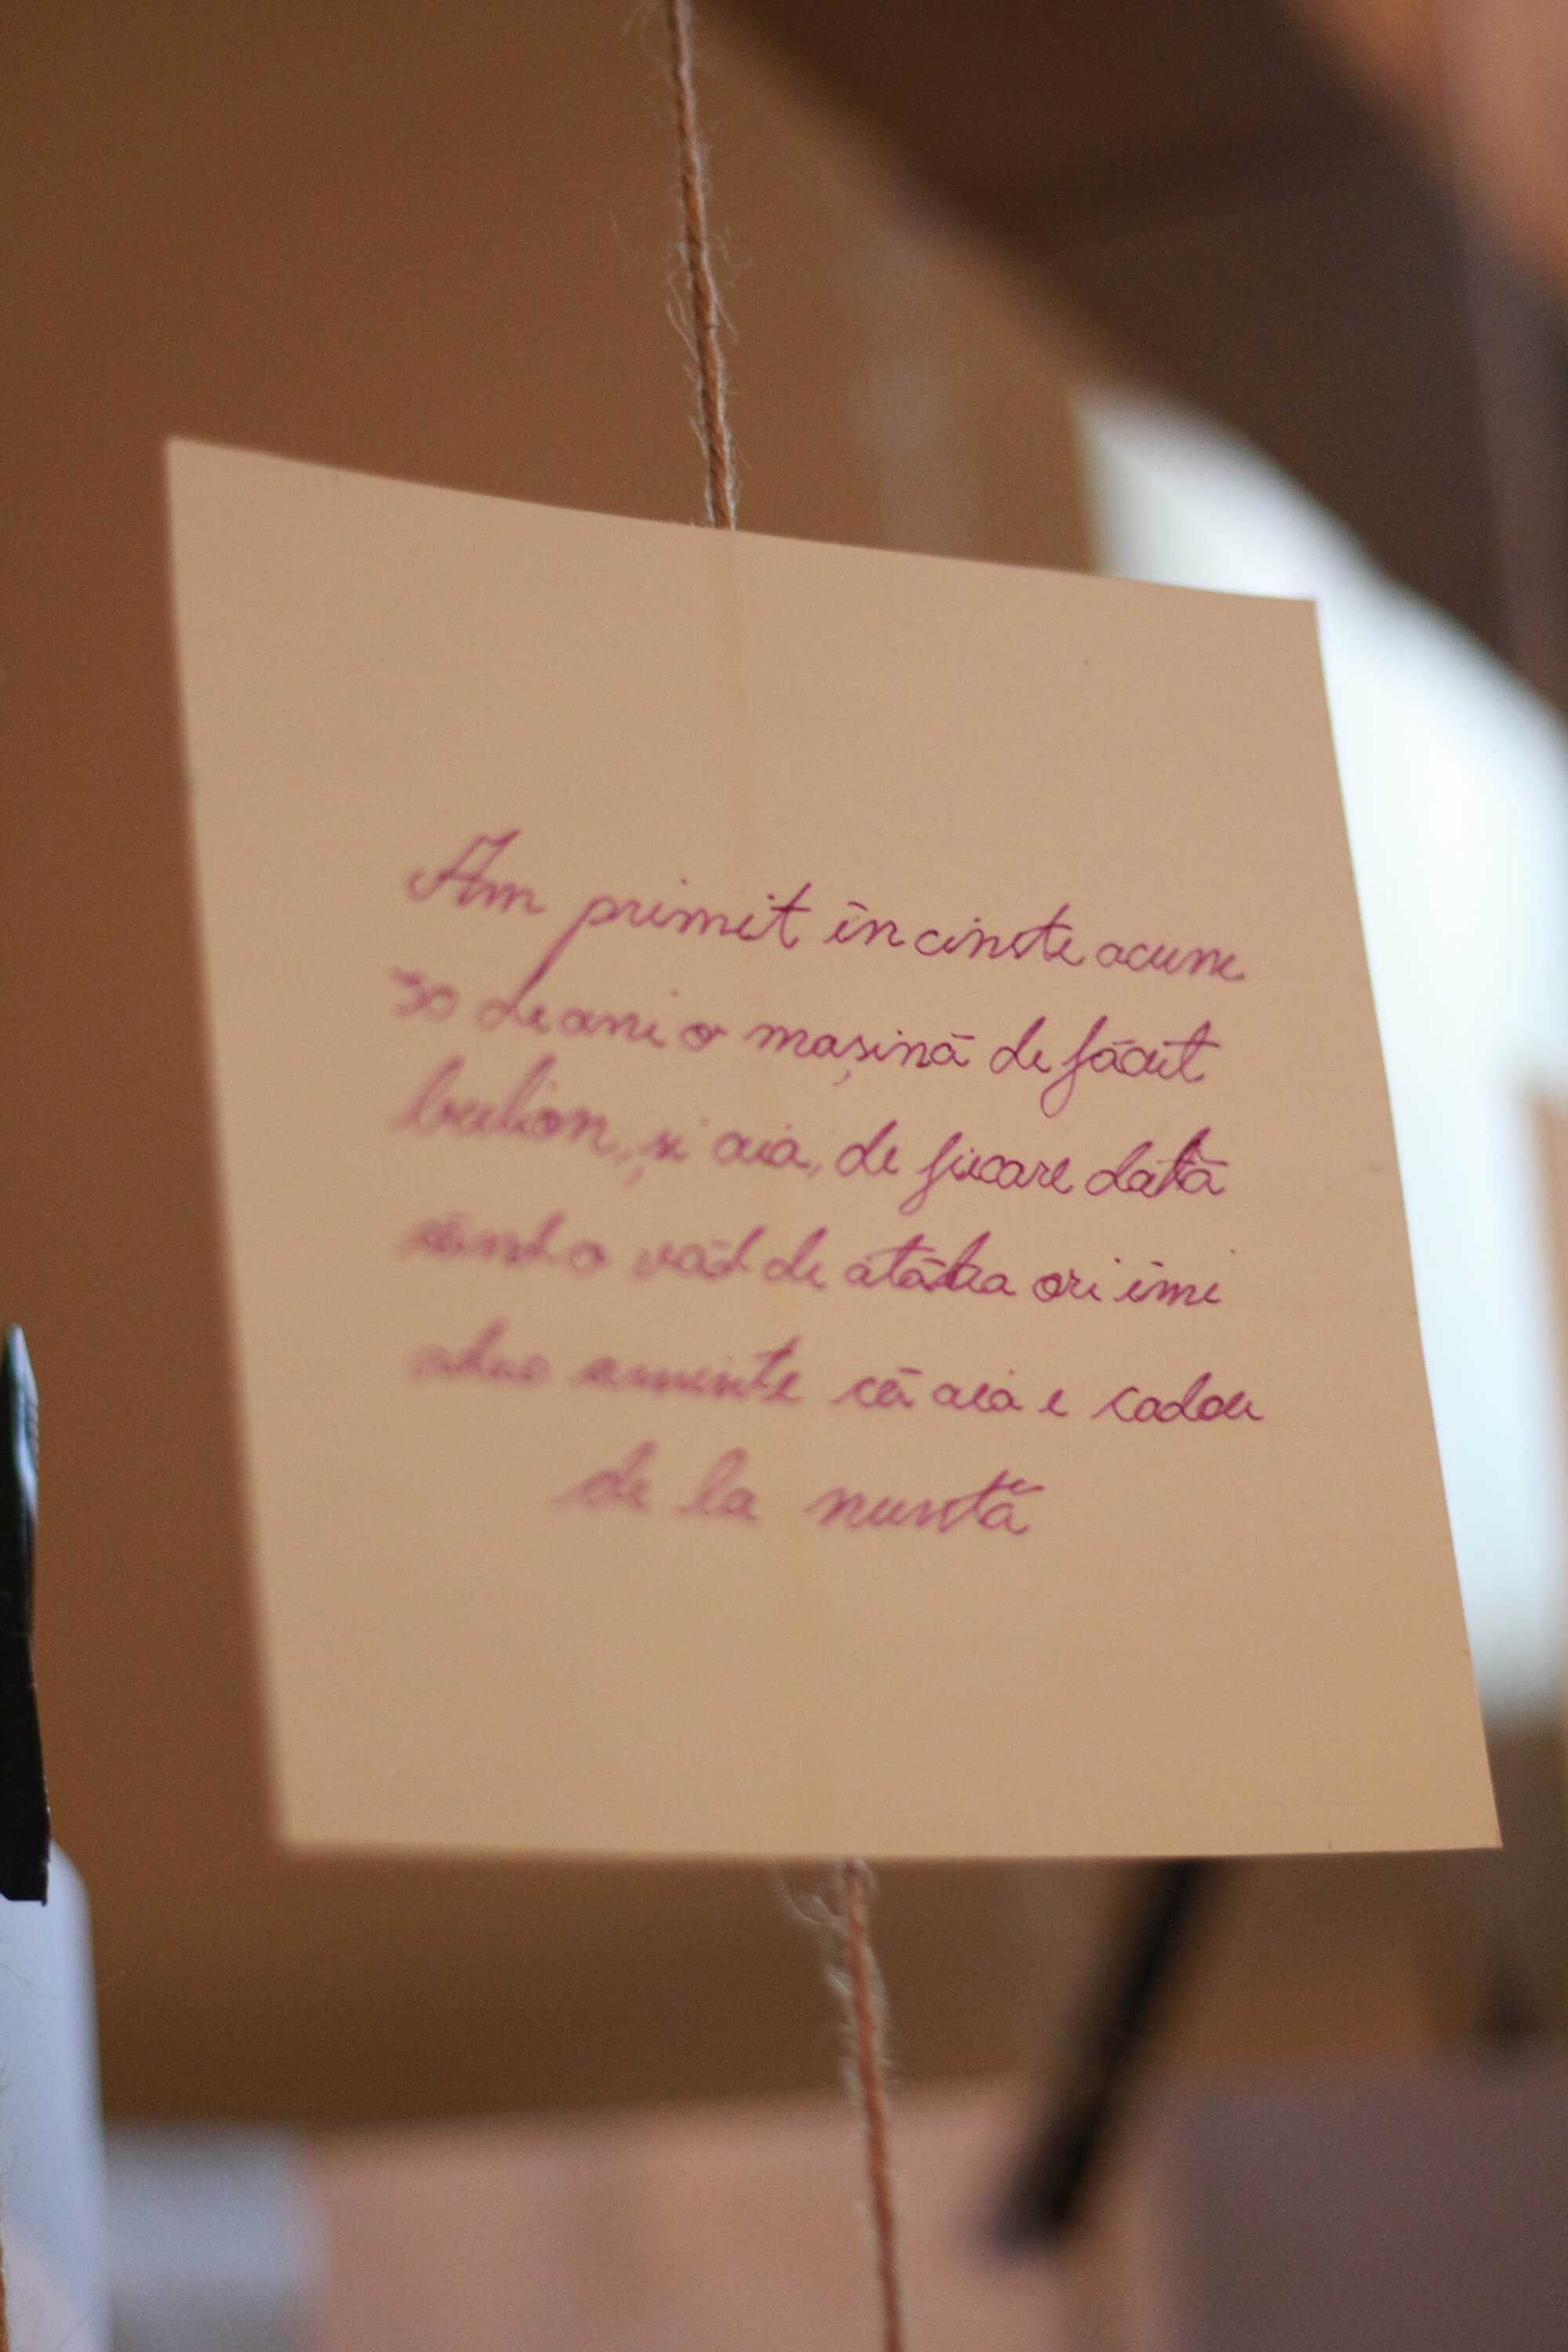 Am primit în cinste acum
30 de ani o mașină de făcut
bulion, și aia, de fiecare dată
când o văd de atâtea ori îmi
aduc aminte că aia e cadou
de la nuntă